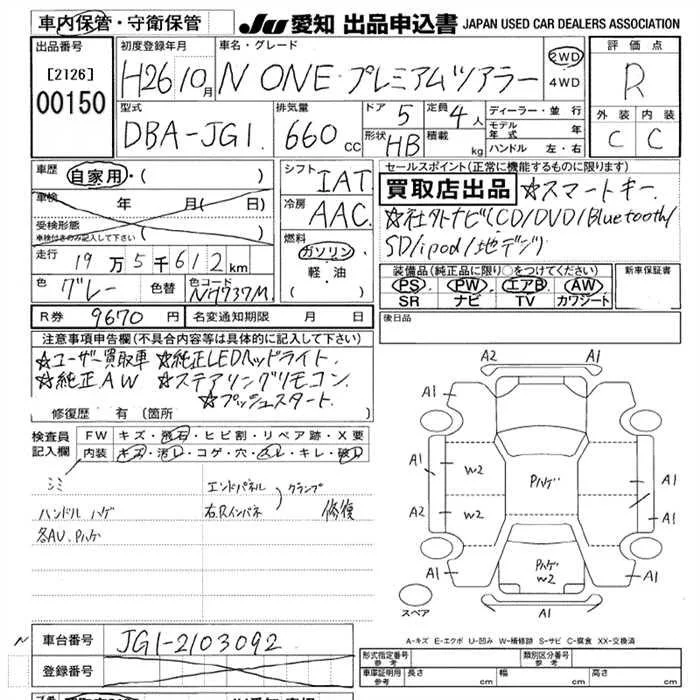 車内保管・守衛保管 JU 愛知 出品申込書 JAPAN USED CAR DEALERS ASSOCIATION
出品番号 初度登録年月 車名・グレード 評価点
[2126] H26 10月 N ONE プレミアムツアラー 2WD 4WD R
00150
型式 排気量 ドア 5 定員 4人 ディーラー・並行 外装 内装
DBA-JG1. 660cc 形状 HB 積載 kg モデル年式 年 C C
ハンドル 左・右
車歴 自家用・( ) シフト IAT セールスポイント(正常に機能するものに限ります)
車検 年 月( 日) 冷房 AAC 買取店出品 ☆スマートキー.
受検形態 ☆社外ナビ(CD/DVD/Bluetooth/
車検付きのみ記入して下さい 燃料 SD/ipod/地デジ)
走行 19万5千612km ガソリン
軽・油 装備品(純正品に限り○をつけてください) 新車保証書
色 グレー 色替 色コード NH737M PS PW エアB AW
SR ナビ TV カワシート
R券 9670円 名変通知期限 月 日 後日品
注意事項申告欄(不具合内容等は具体的に記入して下さい)
☆ユーザー買取車 ☆純正LEDヘッドライト.
☆純正AW ☆ステアリングリモコン
☆プッシュスタート.
修復歴 有(箇所 )
検査員記入欄 FW キズ・飛石・ヒビ割・リペア跡・X要
内装 キズ・汚レ・コゲ・穴・スレ・キレ・破レ
シミ エンドパネル クランプ
ハンドル ハゲ 右.Rインパネ 修復
各AU.Pハゲ
A2 A1
A1 A1
A1 W2 Pハゲ A1
A2 W2 A1
Pハゲ W2
A1 A1
スペア A1
A-キズ E-エクボ U-凹み W-補修跡 S-サビ C-腐食 XX-交換済
N 車台番号 JG1-2103092 形式指定番号 参考 類別区分番号 参考
登録番号 車庫証明用 参考 長さ cm 幅 cm 高さ cm